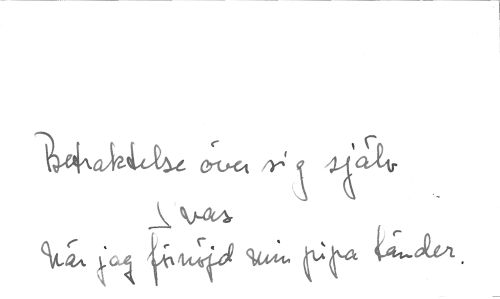 Betraktelse över sig själv
vas
När jag förnöjd min pipa tänder.